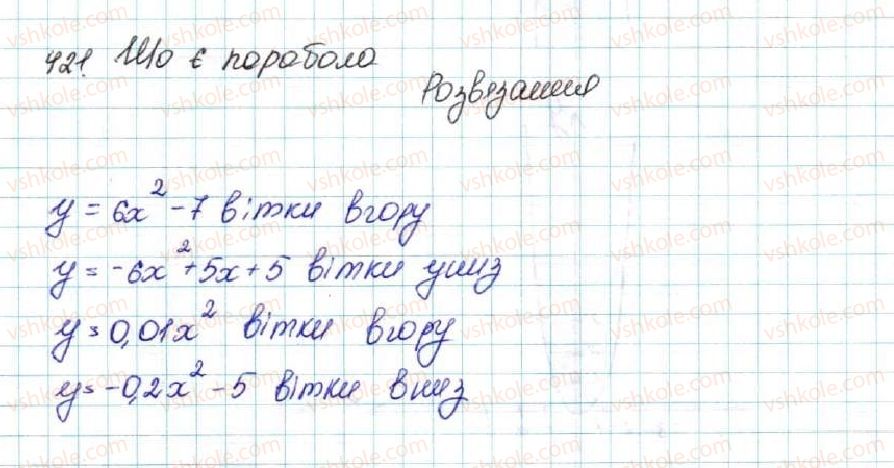 421. Що є парабола
Розвязання
y = 6x² - 7 вітки вгору
y = -6x² + 5x + 5 вітки униз
y = 0,01x² вітки вгору
y = -0,2x² - 5 вітки вниз